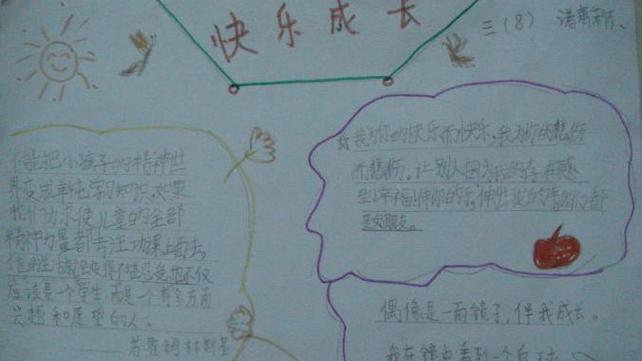 快乐成长
三(8)
不能把小孩子的精神世
界变成单纯学习知识。如果
我们力求使儿童的全部
精神力量都专注功课上面去,
他的生活就会变得不堪忍受。他不仅
应该是一个学生,而是一个有多方面
兴趣和愿望的人。
苏霍姆林斯基
我为你的快乐而快乐,我为你的悲伤
而悲伤。让别人因为我的存在感
到幸福
是好朋友。
偶像是一面镜子,伴我成长。
我在镜中看到一个自